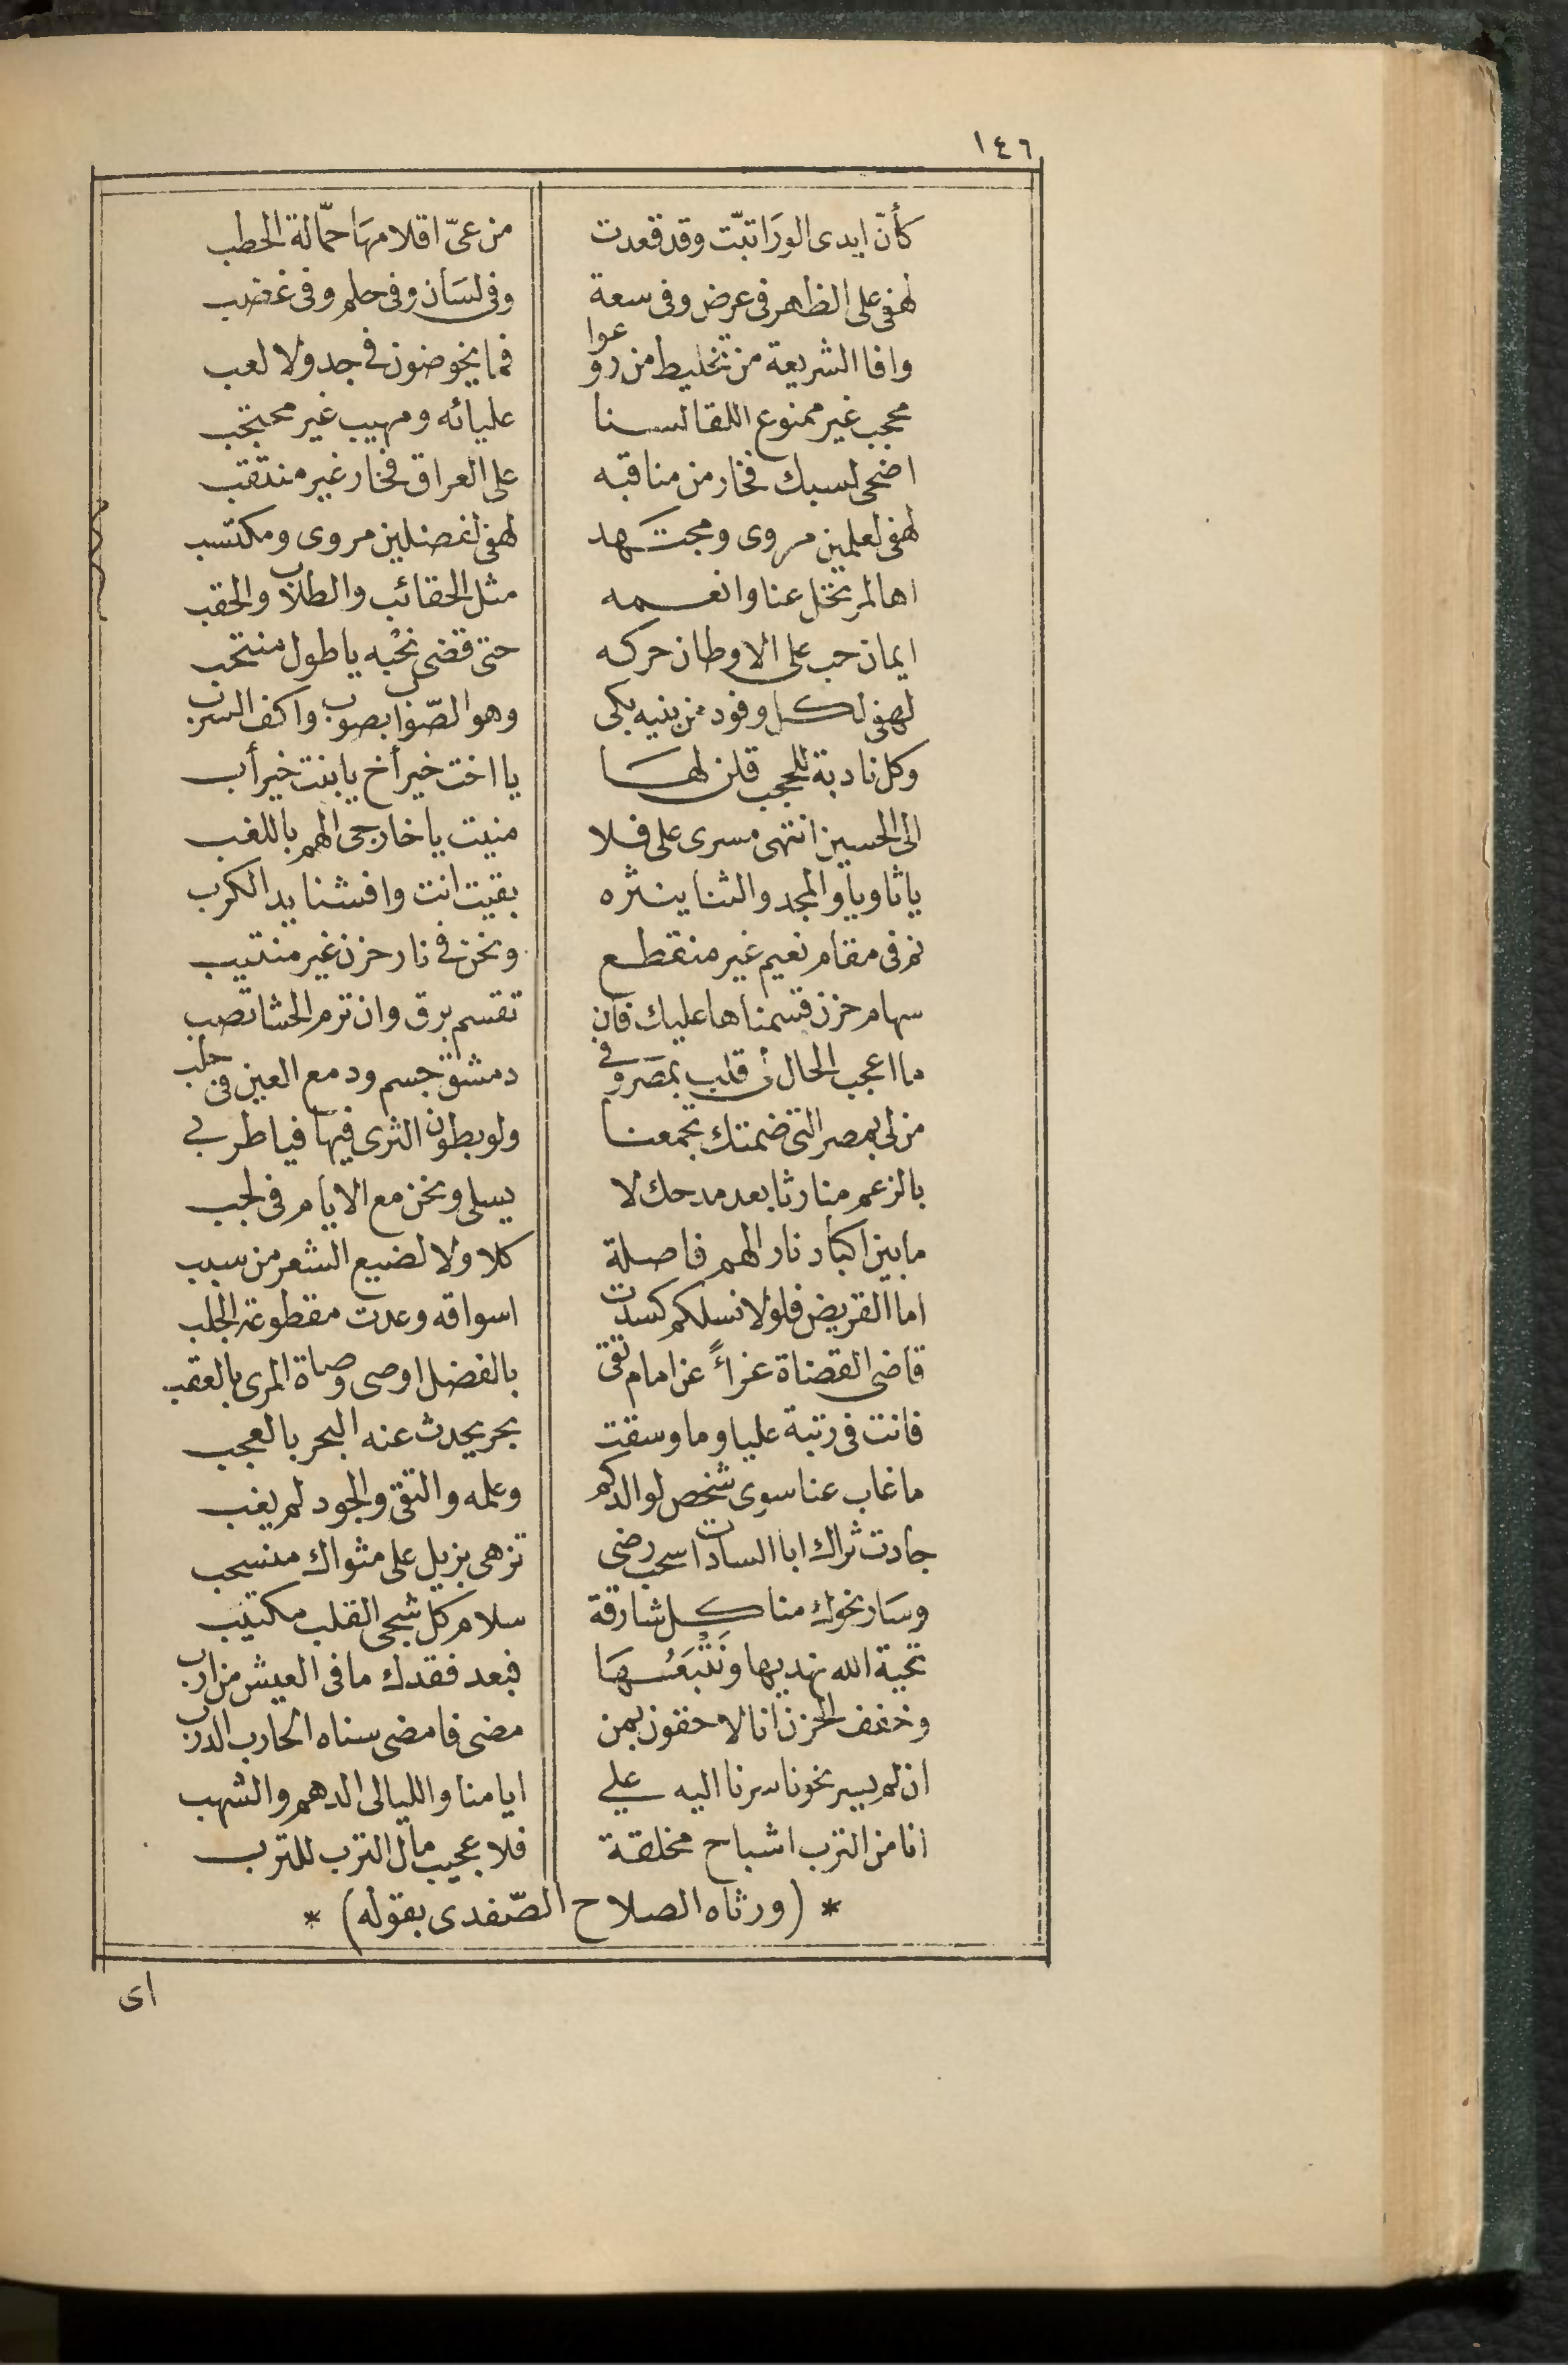 ١٤٦
كأنّ ايدى الورَا تبّت وقد قعدت من عىّ اقلامهَا حمّالة الحطب
لهفى على الظاهر فى عرض وفى سعة وفى لسَان وفى حلم وفى غضب
وافا الشريعة من تخليط من روعوا فما يخوضون فى جد ولا لعب
محجب غير ممنوع اللقا لسنا عليائه ومهيب غير محتجب
اضحى لسبك فخار من مناقبه على العراق فخار غير منتقب
لهفى لعلمين مروى ومجتهد لهفى لفضلين مروى ومكتسب
اها لمرتحل عنا وانعمه مثل الحقائب والطلاب والحقب
ايمان حب على الاوطان حركه حتى قضى نحبه يا طول منتحب
لهفى لكل وفود من بنيه بكى وهو الصّواب بصوب واكف السرب
وكل نادبة للحجب قلن لهَا يا اخت خير أخ يا بنت خير أب
الى الحسين انتهى مسرى على فلا منيت يا خارجى الهم باللغب
يا ثاويا والمجد والثنا ينشره بقيت انت وافشنا يد الكرب
نم فى مقام نعيم غير منقطع ونحن فى نار حزن غير منتيب
سهام حزن قسمناها عليك فان تقسم برق وان ترم الحشا تصب
ما اعجب الحال لى قلب بمصَر وفى دمشق جسم ودمع العين فى حلب
من لى بمصر التى ضمتك تجمعنا ولو بطون الثرى فيها فيا طربى
بالزعم منا رثا بعد مدحك لا يسلى ونحن مع الايام فى لجب
ما بين اكباد نار الهم فاصلة كلا ولا لضيع الشعر من سبب
اما القريض فلولا نسلكم كسدت اسواقه وعدت مقطوعة الجلب
قاضى القضاة عزاءً عن امام تقى بالفضل اوصى وصاة المرى بالعقب
فانت فى رتبة عليا وما وسقت بحر يحدث عنه البحر بالعجب
ما غاب عنا سوى شخص لوالدكم وعلمه والتقى والجود لم يغب
جادت ثراك ابا السادات سحب رضى تزهى بزيل على مثواك منسحب
وسَار نحوك منا كل شارقة سلام كل شجى القلب مكتيب
تحية الله نهديها ونَتْبَعُهَا فبعد فقدك ما فى العيش من ارب
وخفف الحزن انا لاحقون بمن مضى فامضى سناه الحارب الدرب
ان لم يسر نحونا سرنا اليه على ايامنا والليالى الدهم والشهب
انا من الترب اشباح مخلقة فلا عجيب مآل الترب للترب
* (ورثاه الصلاح الصّفدى بقوله) *
اى